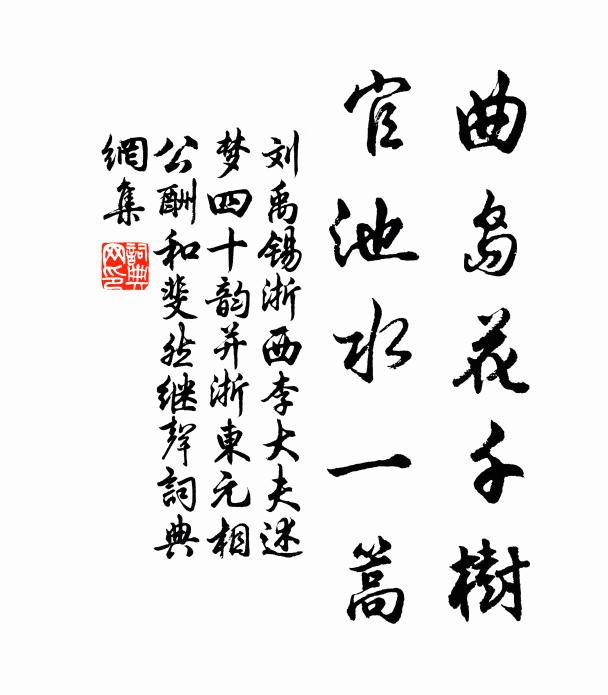 曲岛花千樹
官池水一篙
刘禹锡浙西李大夫述
梦四十韵并浙東元相
公酬和斐然继聲詞典
網集
詞典网印